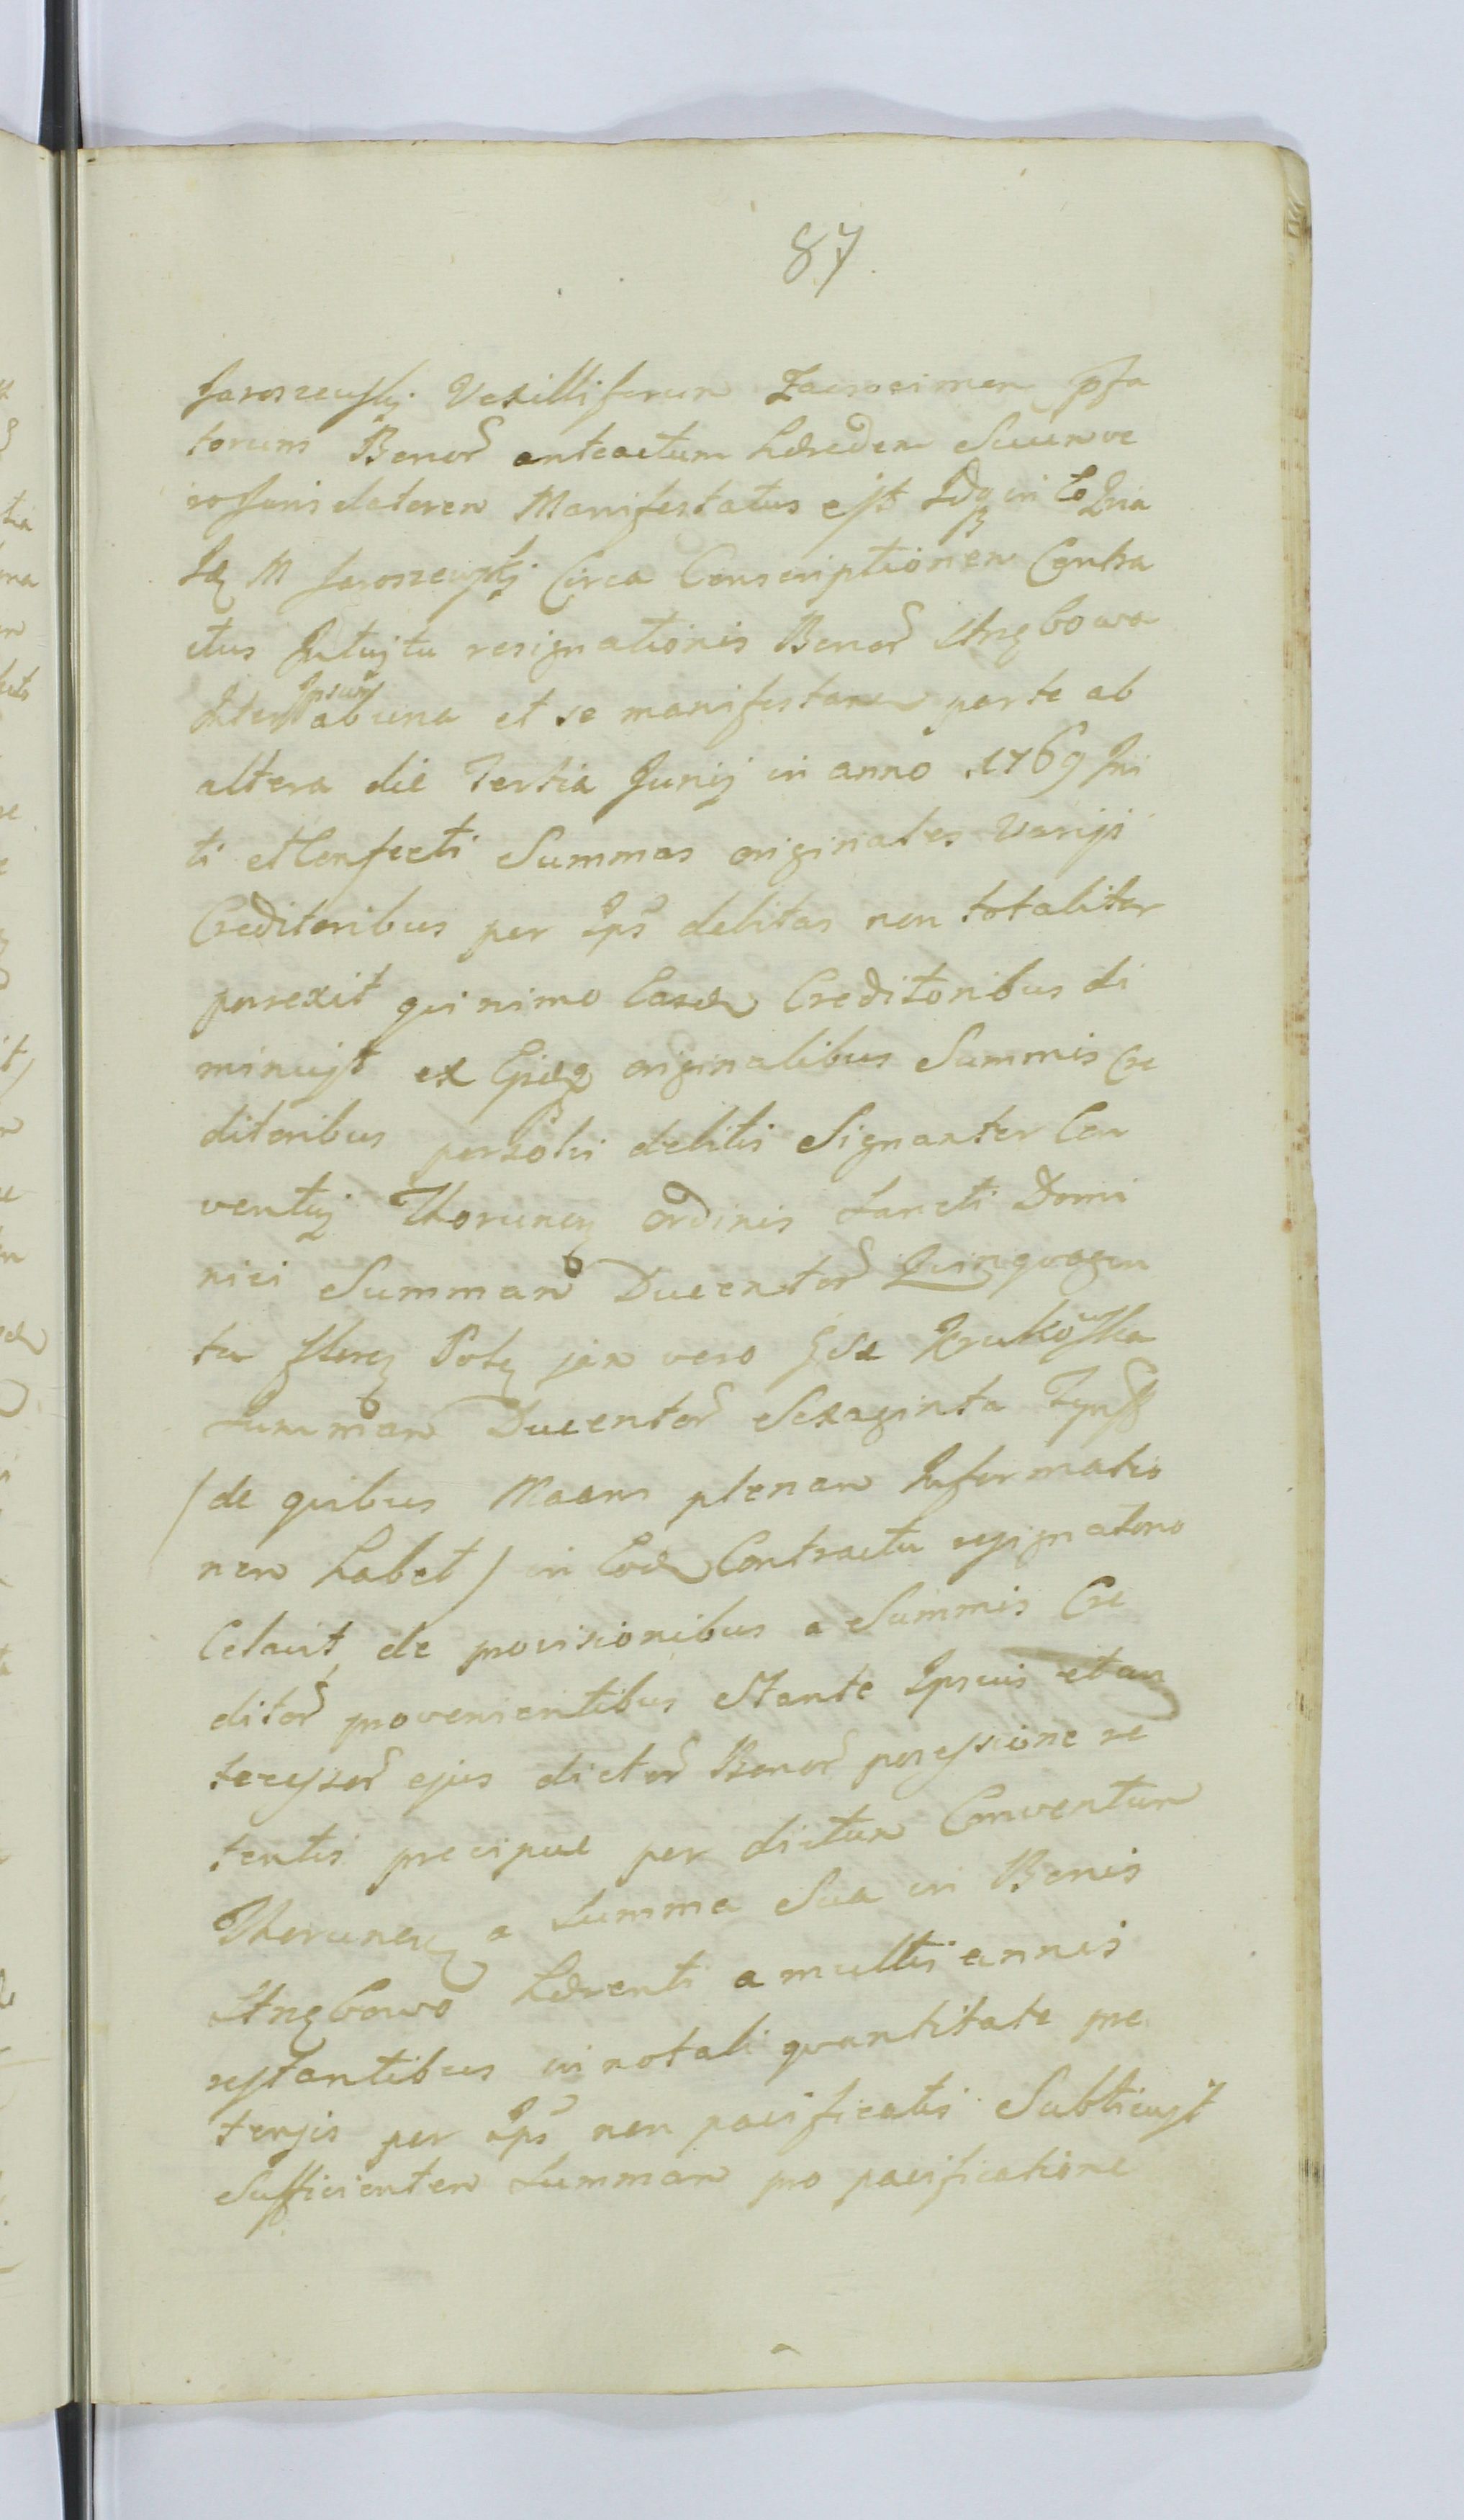 87
Jaroszewskj Vexilliferum pfa
torum Benor anteactum hæredem Suumve
ro Juris datorem Manifestatus est Idq in Eo Quia
Idę M Jaroszewskj Circa Conscriptionem Contra
ctus Intujtu resignationis Benor
Inter Ipsum ab una et se manifestanem parte ab
altera die Tertia Junij in anno 1769 Ini
ti et Confecti Summas originales Varijs
Creditoribus per Ips debitas non totaliter
porexit quinimo Easdem Creditoribus di
minuyt ex originalibus Summis Cre
ditoribus persolvi debitis Signanter Con
ventuj Thorunen ordinis Sancti Domi
nici Summam Ducentor Quinquagin
ta floren jam vero Krukowska
Summam Ducentor Sexaginta Tynff
/de quibus Maans plenam Informatio
nem habet/ in Eodem Contractu resignationo
Celavit, de provisionibus a Summis Cre
ditor provenientibus Stante Ipsius et an
tecessor ejus dictor Benor possessione re
tentis precipue per dictum Conventum
Thorunen a Summa Sua in Bonis
hærenti a multis annis
restantibus in notabli quantitate pre
tensis per Ips non pacificatis Subticuyt
Sufficientem Summam pro pacificatione